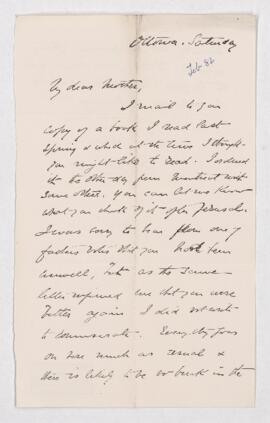 Ottawa. Saturday
Feb 86
My dear Mother,
I mail to you
copy of a book I read last
spring & which at the time I thought
you might like to read. I ordered
it the other day from Montreal with
some others. You can let me know
what you think of it after perusal.
I was sorry to hear from one of
father's notes that you had been
unwell, but as the same
letter informed me that you were
better again I did not write
to commiserate. Everything goes
on here much as usual &
there is likely to be no break in the